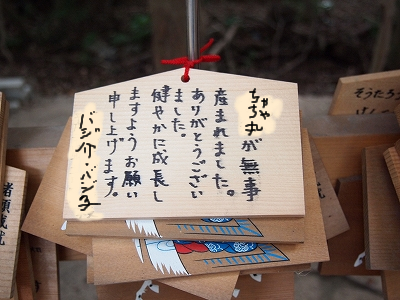 ちゃちゃ丸が無事
産まれました。
ありがとうござい
ました。
健やかに成長し
ますようお願い
申し上げます。
バジ介・バジ子
諸願成就